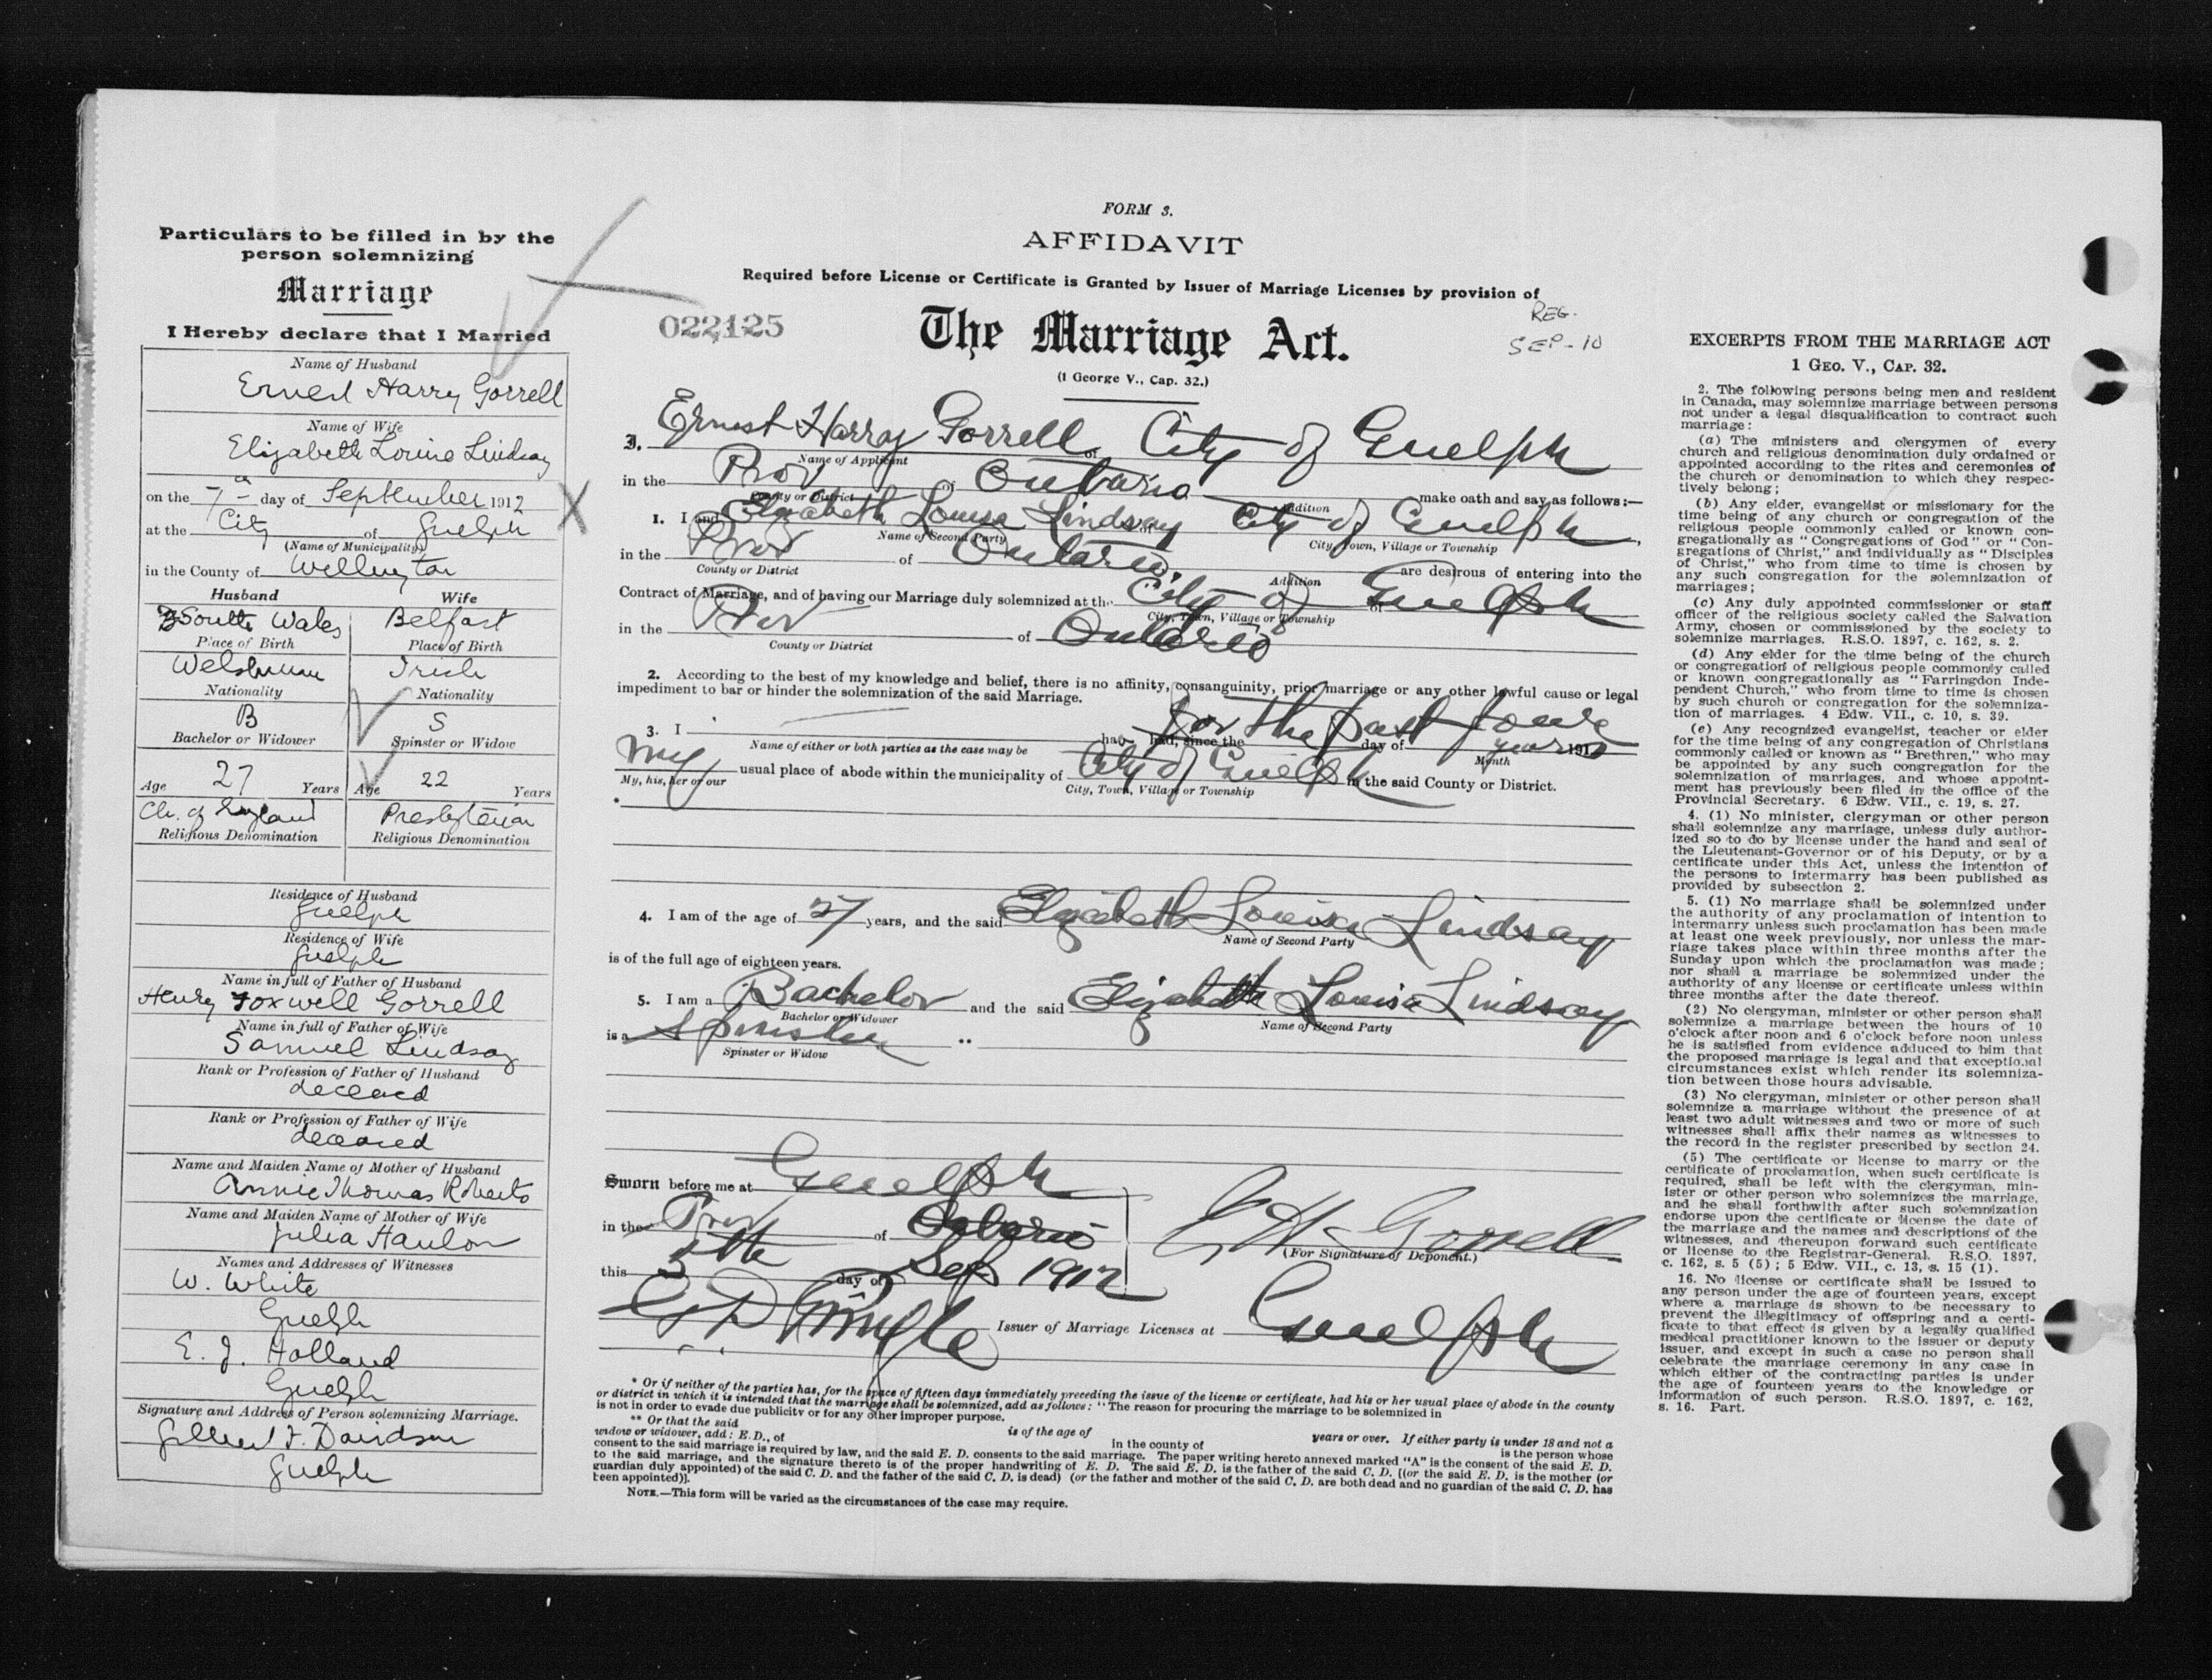 Particulars to be filled in by the
person solemnizing
Marriage
I Hereby declare that I Married
Name of Husband
Ernest Harry Gorrell
Name of Wife
Elizabeth Louise Lindsay
on the 7th day of September 1912
at the City of Guelph
(Name of Municipality)
in the County of Wellington
Husband Wife
South Wales Belfast
Place of Birth Place of Birth
Welshman Irish
Nationality Nationality
B S
Bachelor or Widower Spinster or Widow
Age 27 Years Age 22 Years
Ch. of England Presbyterian
Religious Denomination Religious Denomination
Residence of Husband
Guelph
Residence of Wife
Guelph
Name in full of Father of Husband
Henry Foxwell Gorrell
Name in full of Father of Wife
Samuel Lindsay
Rank or Profession of Father of Husband
deceased
Rank or Profession of Father of Wife
deceased
Name and Maiden Name of Mother of Husband
Annie Thomas Roberts
Name and Maiden Name of Mother of Wife
Julia Hanlon
Names and Addresses of Witnesses
W. White
Guelph
E. J. Holland
Guelph
Signature and Address of Person solemnizing Marriage.
Gilbert F. Davidson
Guelph
FORM 3.
AFFIDAVIT
Required before License or Certificate is Granted by Issuer of Marriage Licenses by provision of
022125
The Marriage Act.
REG.
SEP-10
(1 George V., Cap. 32.)
I, Ernest Harry Gorrell of City of Guelph
Name of Applicant
in the Prov of Ontario make oath and say as follows:—
County or District Addition
1. I and Elizabeth Louisa Lindsay of City of Guelph,
Name of Second Party City, Town, Village or Township
in the Prov of Ontario are desirous of entering into the
County or District Addition
Contract of Marriage, and of having our Marriage duly solemnized at the City of Guelph
City, Town, Village or Township
in the Prov of Ontario
County or District
2. According to the best of my knowledge and belief, there is no affinity, consanguinity, prior marriage or any other lawful cause or legal
impediment to bar or hinder the solemnization of the said Marriage.
3. I have had, since the for the past four years day of 191
Name of either or both parties as the case may be Month
my usual place of abode within the municipality of City of Guelph in the said County or District.
My, his, her or our City, Town, Village or Township
*
4. I am of the age of 27 years, and the said Elizabeth Louisa Lindsay
Name of Second Party
is of the full age of eighteen years.
5. I am a Bachelor and the said Elizabeth Louisa Lindsay
Bachelor or Widower Name of Second Party
is a Spinster **
Spinster or Widow
Sworn before me at Guelph
in the Prov of Ontario
E H Gorrell
(For Signature of Deponent.)
this 5th day of Sep 1912
Issuer of Marriage Licenses at Guelph
* Or if neither of the parties has, for the space of fifteen days immediately preceding the issue of the license or certificate, had his or her usual place of abode in the county
or district in which it is intended that the marriage shall be solemnized, add as follows: "The reason for procuring the marriage to be solemnized in
is not in order to evade due publicity or for any other improper purpose.
** Or that the said is of the age of years or over. If either party is under 18 and not a
widow or widower, add: E.D., of in the county of is the person whose
consent to the said marriage is required by law, and the said E. D. consents to the said marriage. The paper writing hereto annexed marked "A" is the consent of the said E. D.
to the said marriage, and the signature thereto is of the proper handwriting of E. D. The said E. D. is the father of the said C. D. [(or the said E. D. is the mother (or
guardian duly appointed) of the said C. D. and the father of the said C. D. is dead) (or the father and mother of the said C. D. are both dead and no guardian of the said C. D. has
been appointed)].
NOTE.—This form will be varied as the circumstances of the case may require.
EXCERPTS FROM THE MARRIAGE ACT
1 GEO. V., CAP. 32.
2. The following persons being men and resident
in Canada, may solemnize marriage between persons
not under a legal disqualification to contract such
marriage:
(a) The ministers and clergymen of every
church and religious denomination duly ordained or
appointed according to the rites and ceremonies of
the church or denomination to which they respec-
tively belong;
(b) Any elder, evangelist or missionary for the
time being of any church or congregation of the
religious people commonly called or known con-
gregationally as "Congregations of God" or "Con-
gregations of Christ," and individually as "Disciples
of Christ," who from time to time is chosen by
any such congregation for the solemnization of
marriages;
(c) Any duly appointed commissioner or staff
officer of the religious society called the Salvation
Army, chosen or commissioned by the society to
solemnize marriages. R.S.O. 1897, c. 162, s. 2.
(d) Any elder for the time being of the church
or congregation of religious people commonly called
or known congregationally as "Farringdon Inde-
pendent Church," who from time to time is chosen
by such church or congregation for the solemniza-
tion of marriages. 4 Edw. VII., c. 10, s. 39.
(e) Any recognized evangelist, teacher or elder
for the time being of any congregation of Christians
commonly called or known as "Brethren," who may
be appointed by any such congregation for the
solemnization of marriages, and whose appoint-
ment has previously been filed in the office of the
Provincial Secretary. 6 Edw. VII., c. 19, s. 27.
4. (1) No minister, clergyman or other person
shall solemnize any marriage, unless duly author-
ized so to do by license under the hand and seal of
the Lieutenant-Governor or of his Deputy, or by a
certificate under this Act, unless the intention of
the persons to intermarry has been published as
provided by subsection 2.
5. (1) No marriage shall be solemnized under
the authority of any proclamation of intention to
intermarry unless such proclamation has been made
at least one week previously, nor unless the mar-
riage takes place within three months after the
Sunday upon which the proclamation was made;
nor shall a marriage be solemnized under the
authority of any license or certificate unless within
three months after the date thereof.
(2) No clergyman, minister or other person shall
solemnize a marriage between the hours of 10
o'clock after noon and 6 o'clock before noon unless
he is satisfied from evidence adduced to him that
the proposed marriage is legal and that exceptional
circumstances exist which render its solemniza-
tion between those hours advisable.
(3) No clergyman, minister or other person shall
solemnize a marriage without the presence of at
least two adult witnesses and two or more of such
witnesses shall affix their names as witnesses to
the record in the register prescribed by section 24.
(5) The certificate or license to marry or the
certificate of proclamation, when such certificate is
required, shall be left with the clergyman, min-
ister or other person who solemnizes the marriage,
and he shall forthwith after such solemnization
endorse upon the certificate or license the date of
the marriage and the names and descriptions of the
witnesses, and thereupon forward such certificate
or license to the Registrar-General. R.S.O. 1897,
c. 162, s. 5 (5); 5 Edw. VII., c. 13, s. 15 (1).
16. No license or certificate shall be issued to
any person under the age of fourteen years, except
where a marriage is shown to be necessary to
prevent the illegitimacy of offspring and a certi-
ficate to that effect is given by a legally qualified
medical practitioner known to the issuer or deputy
issuer, and except in such a case no person shall
celebrate the marriage ceremony in any case in
which either of the contracting parties is under
the age of fourteen years to the knowledge or
information of such person. R.S.O. 1897, c. 162,
s. 16. Part.